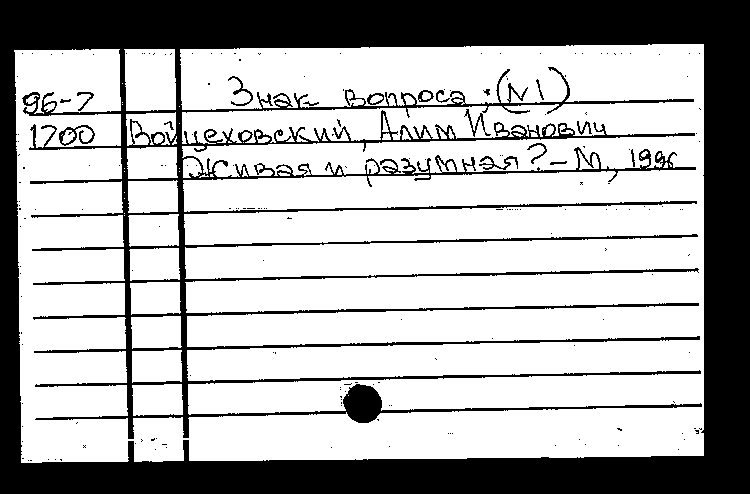 96-7 Знак вопроса; (N1)
1700 Войцеховский, Алим Иванович
Живая и разумная? - М, 1996